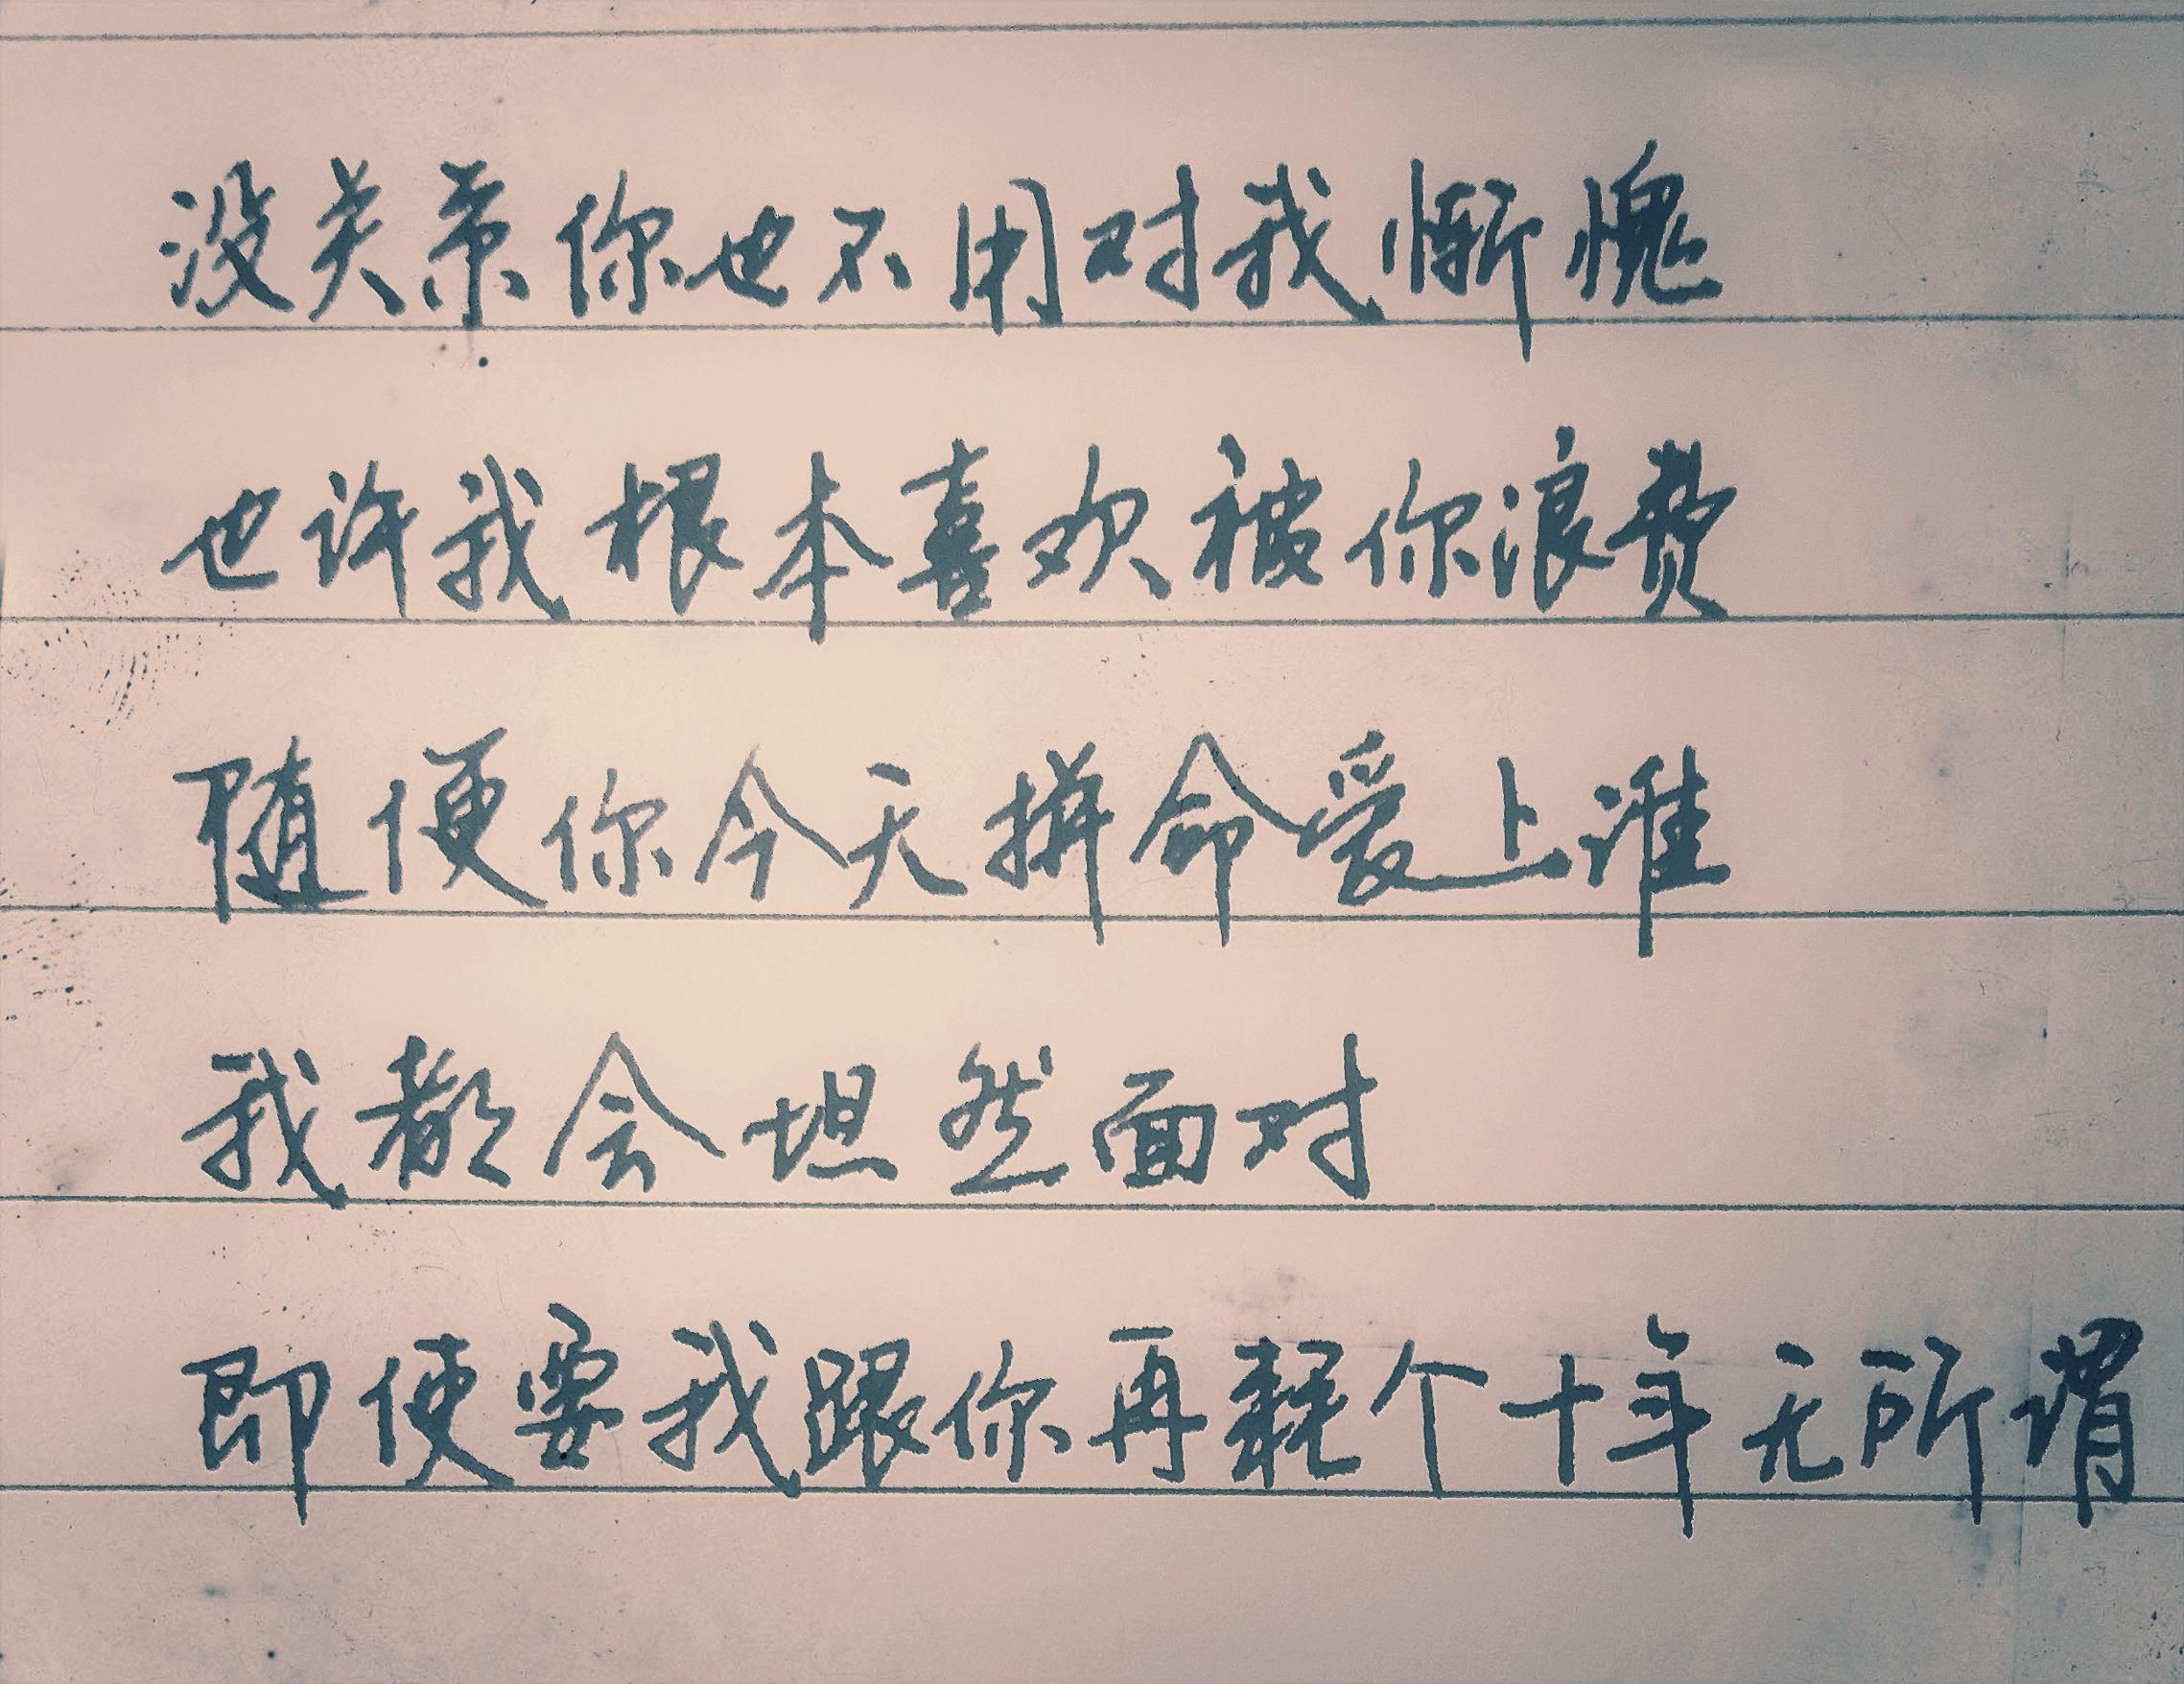 没关系你也不用对我惭愧
也许我根本喜欢被你浪费
随便你今天拼命爱上谁
我都会坦然面对
即使要我跟你再耗个十年无所谓